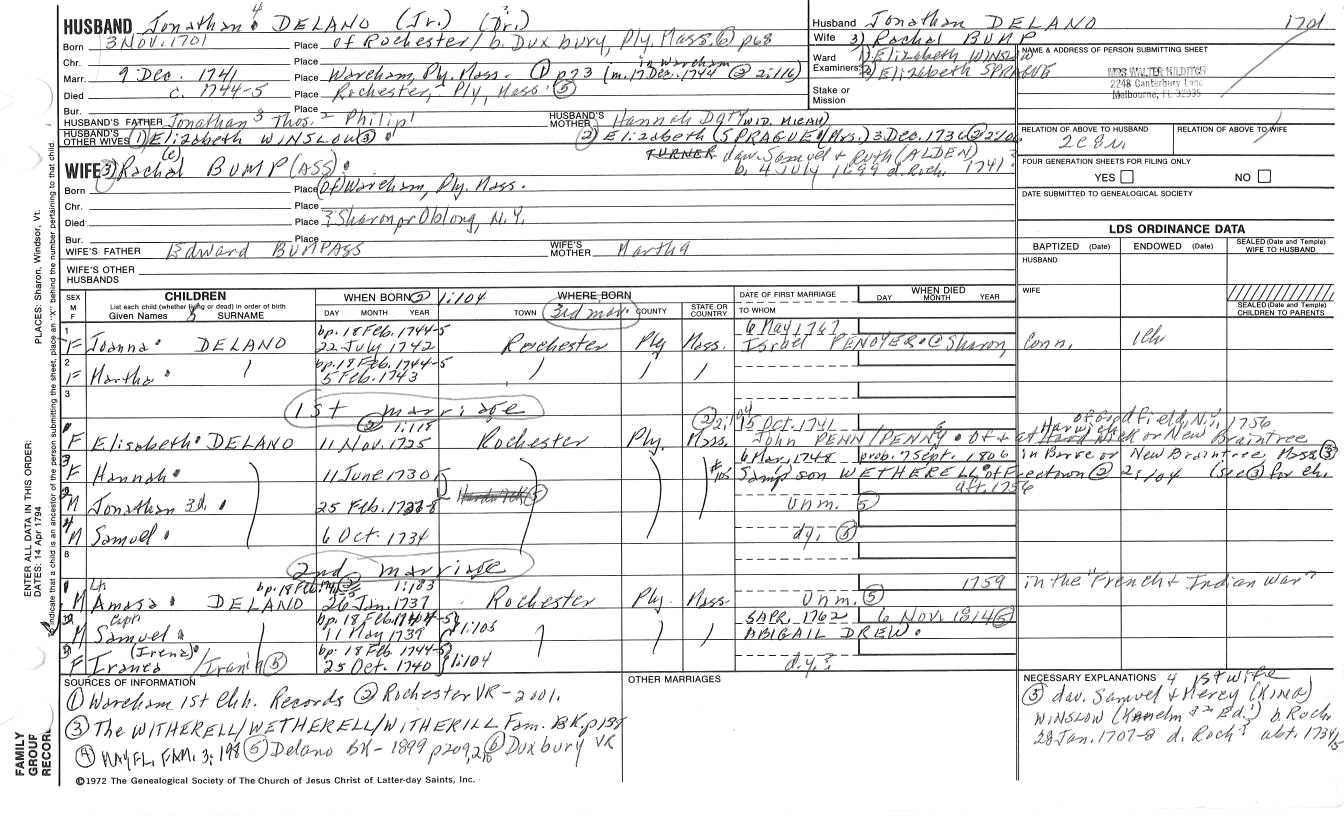 HUSBAND Jonathan 4 DELANO (Jr.) (Dr.)
Born 3 Nov. 1701 Place of Rochester / b. Duxbury, Ply, Mass. (6) p68
Chr. Place in Wareham
Marr. 9 Dec. 1741 Place Wareham, Ply. Mass. (1) p73 (m. 17 Dec. 1744 (2) 2:116)
Died c. 1744-5 Place Rochester, Ply, Mass. (5)
Bur.
HUSBAND'S FATHER Jonathan 3 Thos. 2 Philip 1 HUSBAND'S MOTHER Hannah DOTY (WID. MICAH)
HUSBAND'S OTHER WIVES (1) Elizabeth WINSLOW (3) (2) Elizabeth (SPRAGUE) (Mrs.) 3 Dec. 1736 (2) 2:106
TURNER dau. Samuel + Ruth (ALDEN)
b. 4 July 1699 d. Roch. 1741
WIFE (3) Rachal (e) BUMP (ASS)
Born Place (of) Wareham, Ply. Mass.
Chr. Place
Died Place ? Sharon or Oblong, N.Y.
Bur. Place
WIFE'S FATHER Edward BUMPASS WIFE'S MOTHER Martha
WIFE'S OTHER HUSBANDS
Husband Jonathan DELANO 1701
Wife 3) Rachal BUMP
Ward 1) Elizabeth WINSLOW
Examiners: 2) Elizabeth SPRAGUE
Stake or Mission
NAME & ADDRESS OF PERSON SUBMITTING SHEET
2248 Canterbury Lane
Melbourne, FL 32935
RELATION OF ABOVE TO HUSBAND RELATION OF ABOVE TO WIFE
FOUR GENERATION SHEETS FOR FILING ONLY
YES NO
DATE SUBMITTED TO GENEALOGICAL SOCIETY
LDS ORDINANCE DATA
BAPTIZED (Date) ENDOWED (Date) SEALED (Date and Temple) WIFE TO HUSBAND
HUSBAND
WIFE
SEALED (Date and Temple) CHILDREN TO PARENTS
SEX M F CHILDREN WHEN BORN (2) 1:104 WHERE BORN DATE OF FIRST MARRIAGE WHEN DIED
List each child (whether living or dead) in order of birth
Given Names SURNAME DAY MONTH YEAR TOWN 3rd mar. COUNTY STATE OR COUNTRY TO WHOM DAY MONTH YEAR
1 bp. 18 Feb. 1744-5 6 May 1767
F Joanna DELANO 22 July 1742 Rochester Ply Mass. Israel PENOYER @ Sharon, Conn. 1 Ch
2 bp. 18 Feb. 1744-5
F Martha 5 Feb. 1743
3
1st marriage
(2) 1:118 (2) 2:194 15 Oct. 1741 of Hardfield, N.Y. 1756
F Elisabeth DELANO 11 Nov. 1725 Rochester Ply. Mass. John PENN/PENNY of + at Hardwick or New Braintree
3 6 Mar. 1748 prob. 7 Sept. 1806 in Barre or New Braintree, Mass (3)
F Hannah 11 June 1730 Sampson WETHERELL of Freetown (2) 2:104 (see (3) for ch.
2 aft. 1756
M Jonathan 3d. 25 Feb. 1727-8 (5) unm. (5)
4
M Samuel 6 Oct. 1734 dy. (5)
8
2nd marriage
1 Lt. bp. 18 Feb. (2) 1:103 1759 in the "French + Indian War"
M Amasa DELANO 26 Jan. 1737 Rochester Ply. Mass Unm. (5)
Capt. bp. 18 Feb. 1744-5 5 APR. 1762 6 Nov. 1814 (5)
M Samuel 11 May 1739 1:105 ABIGAIL DREW
(Irena) bp. 18 Feb 1744-5
F Iranea / Iranih (5) 25 Oct. 1740 1:104 d.y.?
SOURCES OF INFORMATION
(1) Wareham 1st Chh. Records (2) Rochester VR-2001.
(3) The WITHERELL/WETHERELL/WITHERILL Fam. BK. p138
(4) MAYFL. FAM. 3:198 (5) Delano BK-1899 p209, (6) Duxbury VR
OTHER MARRIAGES
NECESSARY EXPLANATIONS 1st wife
(3) dau. Samuel 4 + Mercy (KING)
WINSLOW (Kenelm 3 2 Ed. 1) b. Roch.
28 Jan. 1707-8 d. Roch? abt. 1734/5
©1972 The Genealogical Society of The Church of Jesus Christ of Latter-day Saints, Inc.
PLACES: Sharon, Windsor, Vt.
to indicate that a child is an ancestor of the person submitting the sheet, place an "X" behind the number pertaining to that child.
ENTER ALL DATA IN THIS ORDER:
DATES: 14 Apr 1794
FAMILY GROUP RECORD